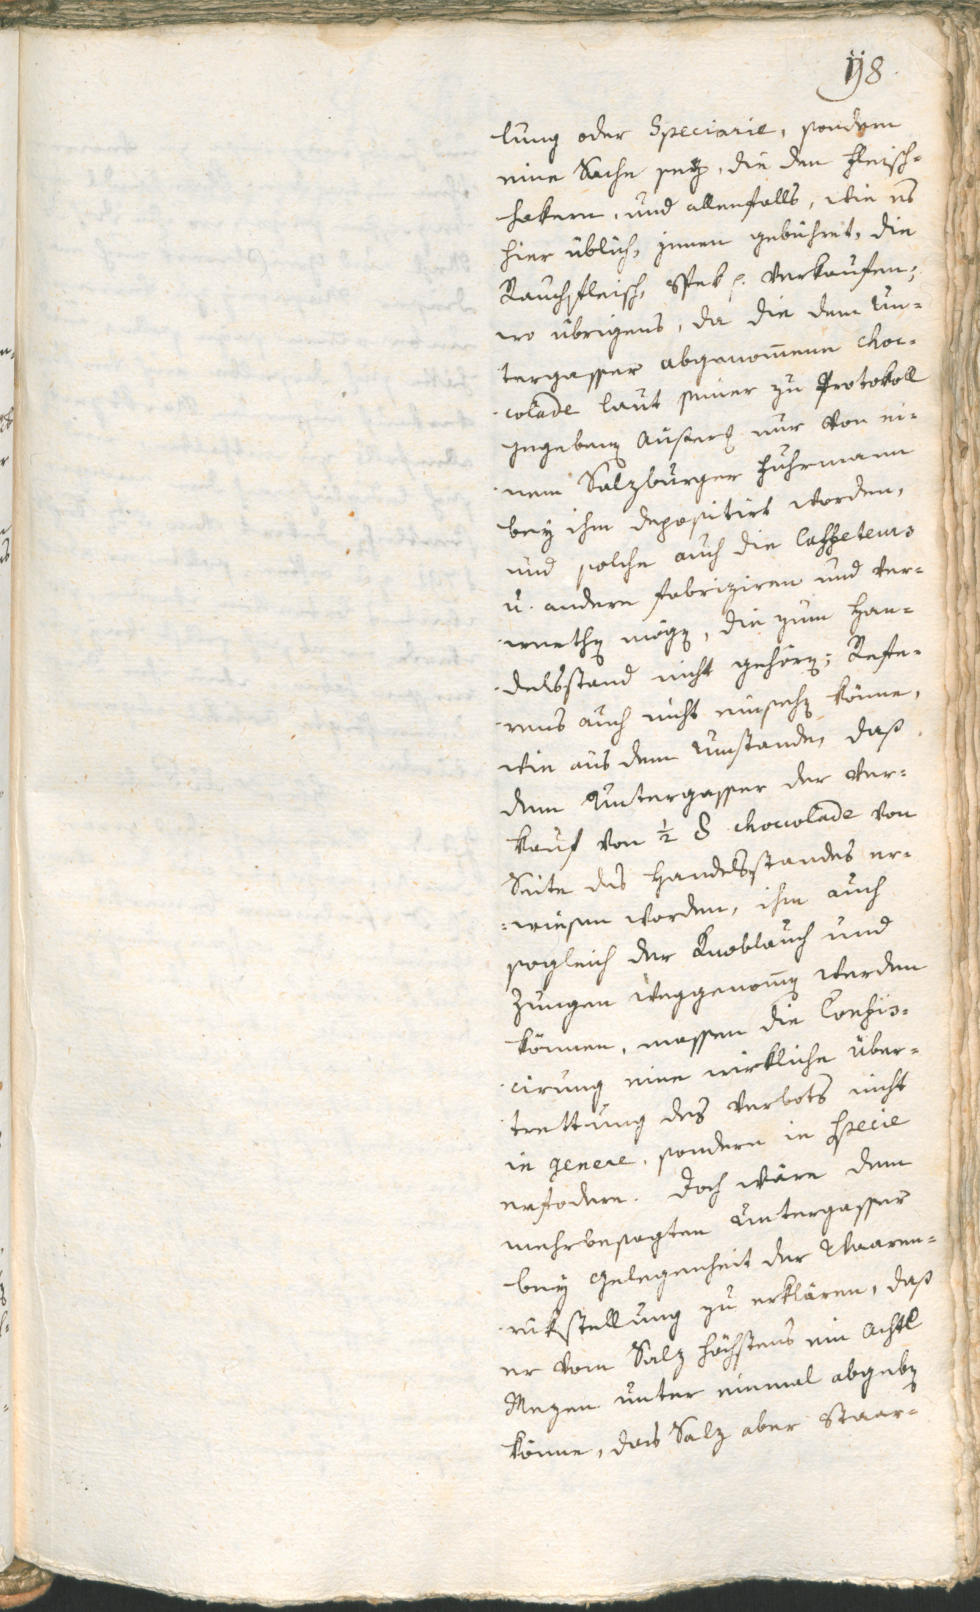 118.
lung oder Speciarie, sondern
eine Sache seye, die den Fleisch-
hakern, und allenfalls, wie es
hier üblich, jenen gebühret, die
Rauchfleisch, Spek p. verkaufen;
wo übrigens, da die dem Un-
tergasser abgenom̅ene choc-
colade laut seiner zu Protokoll
gegebenen Ausserg nur von ei-
nem Salzburger Fuhrmann
bey ihm depositirt worden,
und solche auch die Caffeteurs
u. andere fabriziren und ver-
werthen mögen, die zum Han-
delsstand nicht gehören; Refe-
rens auch nicht einsehen könne,
wie aus dem Umstande, daß
dem Untergasser der Ver-
kauf von ½ ℔ chocolade von
Seite des Handelsstandes er-
wiesen worden, ihm auch
sogleich der Knoblauch und
Zungen weggenom̅en werden
können, massen die Confis-
cirung eine wirkliche Über-
trettung des Verbots nicht
in genere, sondern in specie
erfodere. Doch wäre dem
mehrbesagten Untergasser
bey Gelegenheit der Waaren-
rükstellung zu erklären, daß
er vom Salz höchstens ein Achtl
Mezen unter einmal abgeben
könne, das Salz aber Staar-